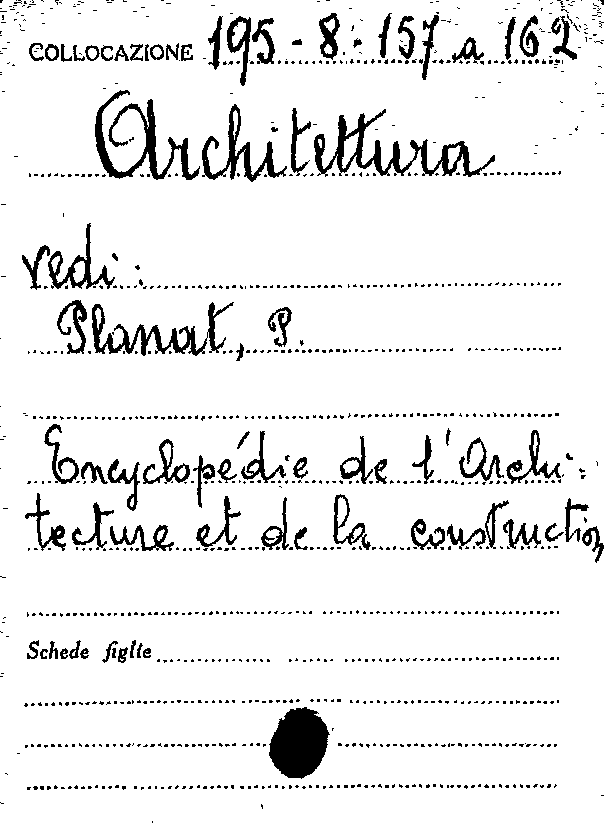 COLLOCAZIONE 195-8-157 a 162
Architettura
vedi:
Planat, P.
Encyclopédie de l'Archi-
tecture et de la construction
Schede figlie